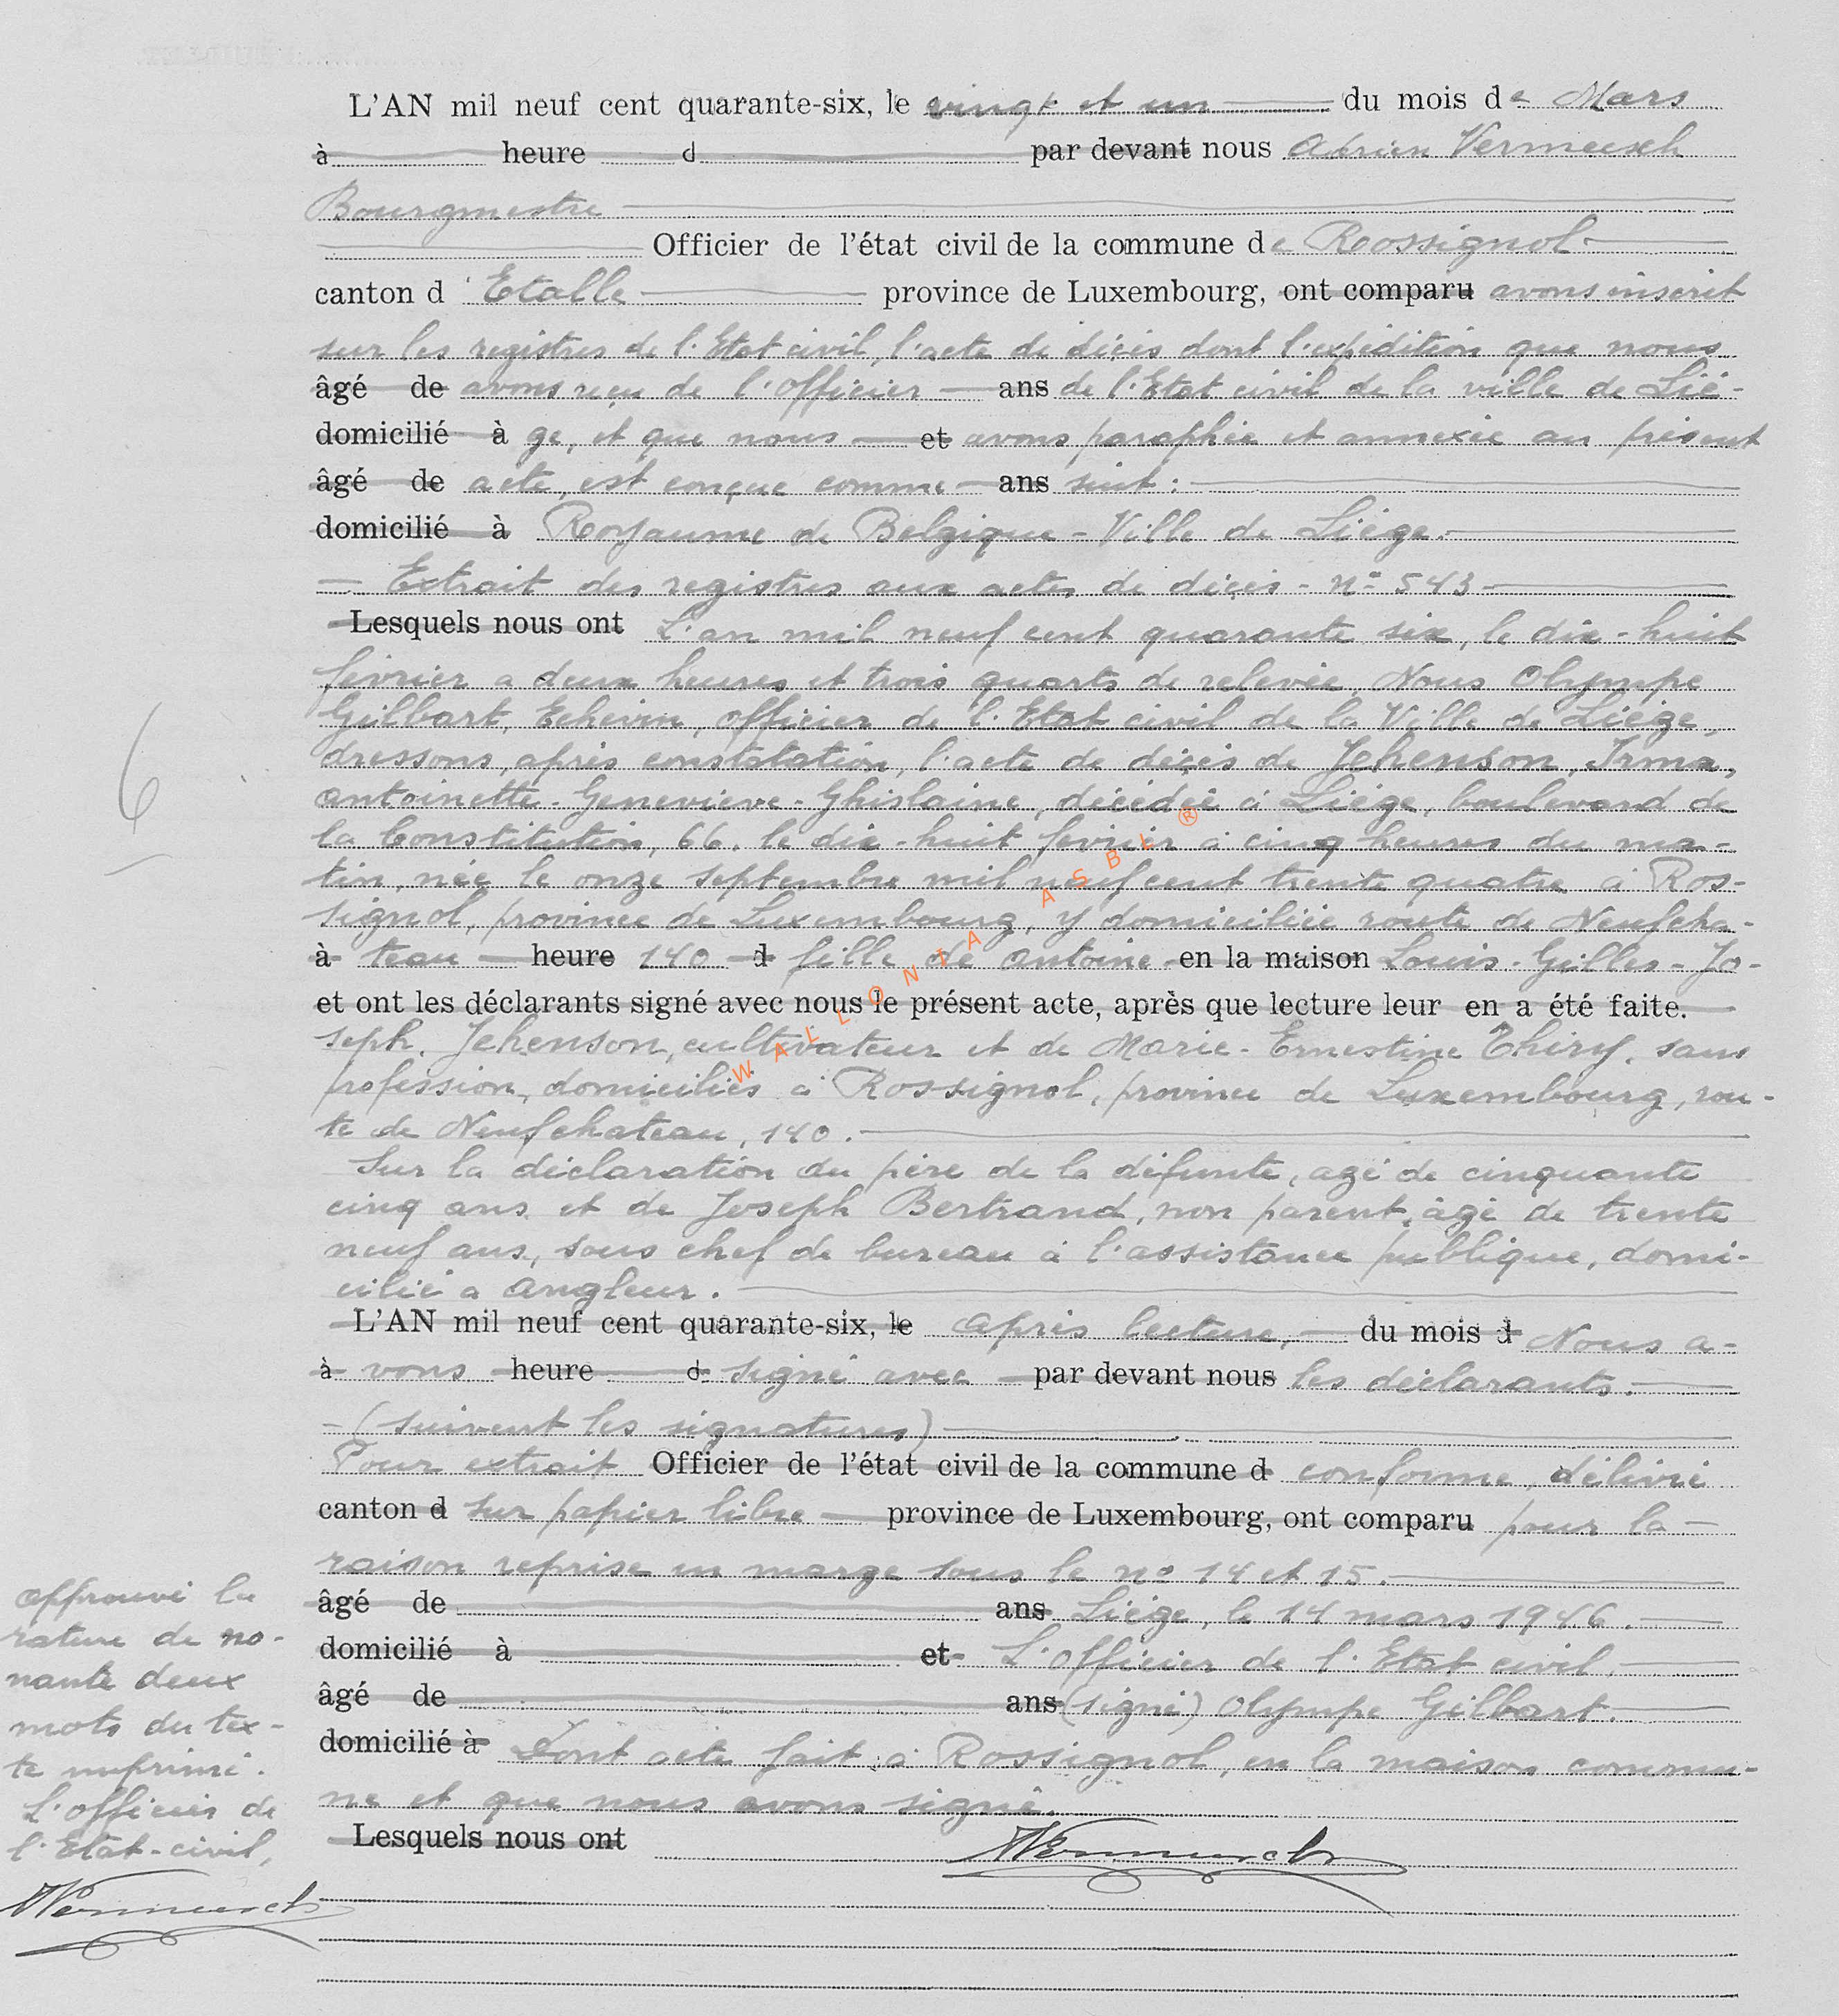 L'AN mil neuf cent quarante-six, le vingt et un du mois de Mars
à heure d par devant nous Adrien Vermeesch
Bourgmestre
Officier de l'état civil de la commune de Rossignol
canton d'Etalle province de Luxembourg, ont comparu avons inscrit
sur les registres de l'Etat civil, l'acte de décès dont l'expédition que nous
âgé de avons reçu de l'officier ans de l'Etat civil de la ville de Liè-
domicilié à ge, et que nous et avons paraphée et annexée au présent
âgé de acte, est conçue comme ans suit :
domicilié à Royaume de Belgique - Ville de Liège.
Extrait des registres aux actes de décès - n° 543
Lesquels nous ont L'an mil neuf cent quarante six, le dix-huit
février à deux heures et trois quarts de relevée, Nous Olympe
Gilbart, Echevin, officier de l'Etat civil de la Ville de Liége,
dressons, après constatation, l'acte de décès de Jehenson, Irma,
Antoinette-Geneviève-Ghislaine, décédée à Liége, boulevard de
la Constitution, 66, le dix-huit février à cinq heures du ma-
tin, née le onze septembre mil neuf cent trente quatre à Ros-
signol, province de Luxembourg, y domiciliée route de Neufchâ-
à teau heure 140 d fille de Antoine en la maison Louis-Gilles-Jo-
et ont les déclarants signé avec nous le présent acte, après que lecture leur en a été faite.
seph. Jehenson, cultivateur et de Marie-Ernestine Thiry, sans
profession, domiciliés à Rossignol, province de Luxembourg, rou-
te de Neufchateau, 140.
Sur la déclaration du père de la défunte, agé de cinquante
cinq ans et de Joseph Bertrand, non parent, âgé de trente
neuf ans, sous chef de bureau à l'assistance publique, domi-
cilié à Angleur.
L'AN mil neuf cent quarante-six, le Après lecture, du mois d Nous a-
à vons heure d signé avec par devant nous les déclarants.
(suivent les signatures)
Pour extrait Officier de l'état civil de la commune d conforme, délivré
canton d sur papier libre province de Luxembourg, ont comparu pour la
raison reprise en marge sous le n° 14 et 15.
âgé de ans Liége, le 14 mars 1946.
domicilié à et L'officier de l'Etat civil.
âgé de ans (signé) Olympe Gilbart.
domicilié à Dont acte fait à Rossignol, en la maison commu-
ne et que nous avons signé.
Lesquels nous ont
Vermeesch
6
Approuvé la
rature de no-
nante deux
mots du tex-
te imprimé.
L'officier de
l'Etat-civil,
Vermeesch
WALLONIA ASBL ®